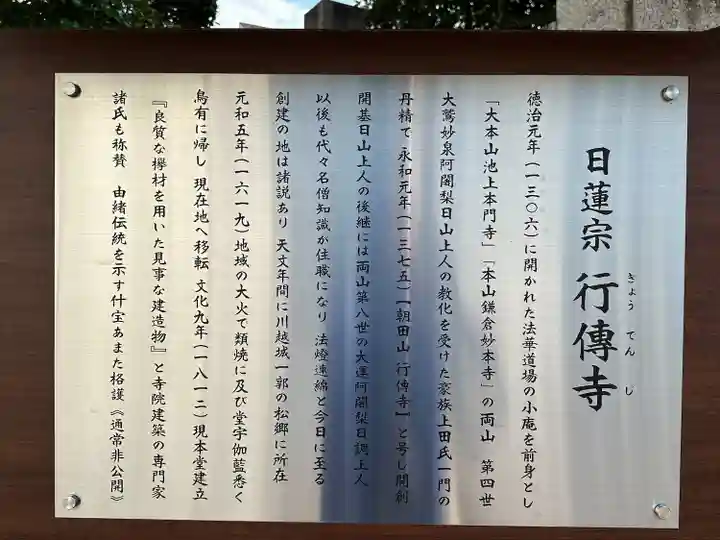 日蓮宗 行傳寺
ぎょう でん じ
徳治元年(一三〇六)に開かれた法華道場の小庵を前身とし
「大本山池上本門寺」「本山鎌倉妙本寺」の両山 第四世
大鷲妙泉阿闍梨日山上人の教化を受けた豪族上田氏一門の
丹精で 永和元年(一三七五)【朝田山 行傳寺】と号し開創
開基日山上人の後継には両山第八世の大運阿闍梨日調上人
以後も代々名僧知識が住職になり 法燈連綿と今日に至る
創建の地は諸説あり 天文年間に川越城一郭の松郷に所在
元和五年(一六一九)地域の大火で類焼に及び堂宇伽藍悉く
烏有に帰し 現在地へ移転 文化九年(一八一二)現本堂建立
『良質な欅材を用いた見事な建造物』と寺院建築の専門家
諸氏も称賛 由緒伝統を示す什宝あまた格護《通常非公開》